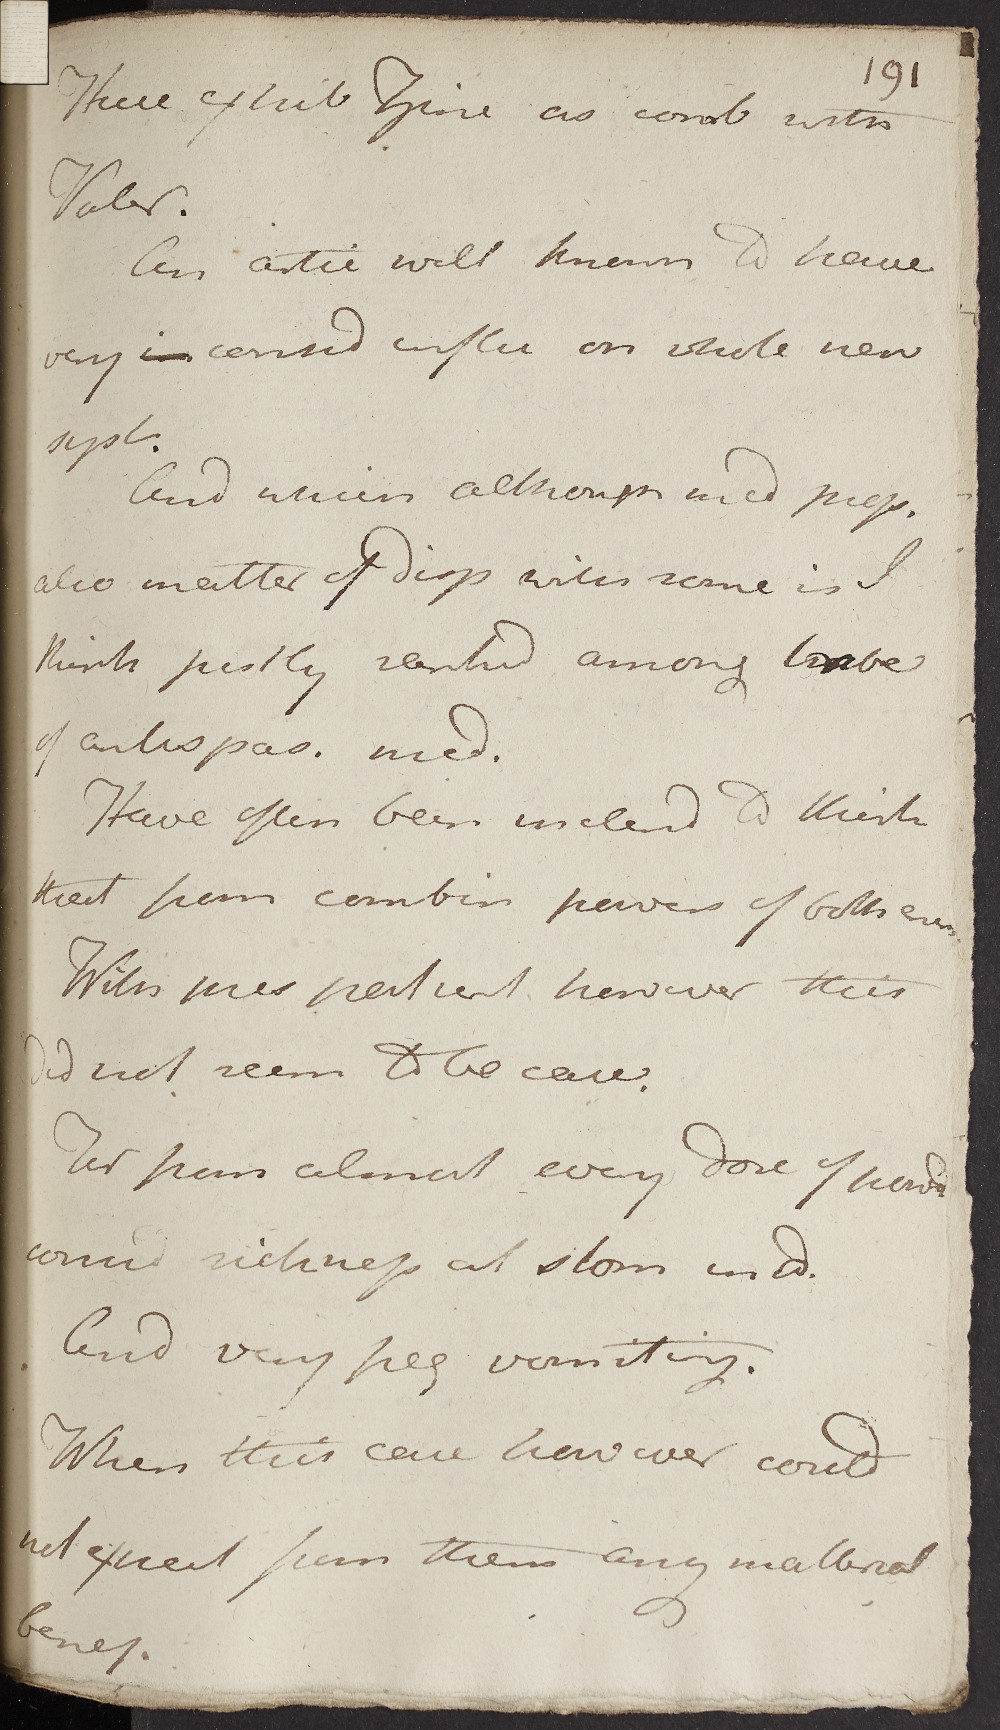 191
Here exhib as comb with
Valer.
An artic well known to have
very in consid influ on whole nerv
syst.
And which although med prep.
also matter of disp with some is I
think justly ranked among tribe
of antispas. med.
Have often been inclend to think
that from combin powers of both
With pres patient however this
did not seem to be case.
For from almost every dose of powd
consid sickness at stom ind.
And very freq vomiting.
When this case however could
not expect from them any matterial
benef.